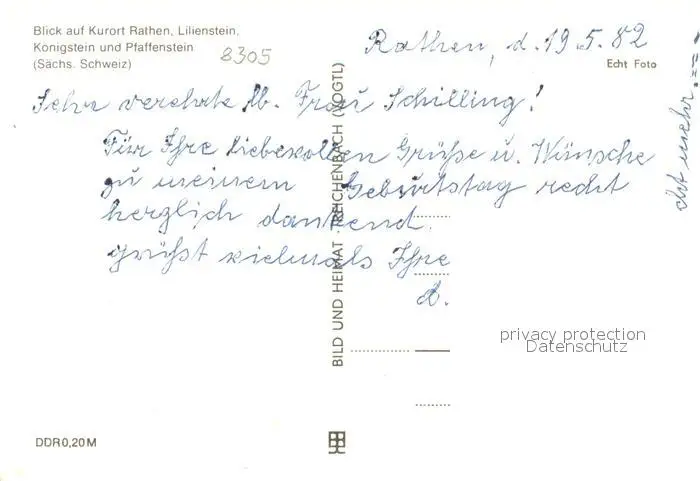 Blick auf Kurort Rathen, Lilienstein,
Königstein und Pfaffenstein
(Sächs. Schweiz)
8305
Rathen, d. 19.5.82
Echt Foto
Sehr verehrte lb. Frau Schilling!
Für Ihre liebevollen Grüße u. Wünsche
zu meinem Geburtstag recht
herzlich dankend
grüßt vielmals Ihre
d.
mehr
BILD UND HEIMAT REICHENBACH (VOGTL)
privacy protection
Datenschutz
DDR 0,20 M